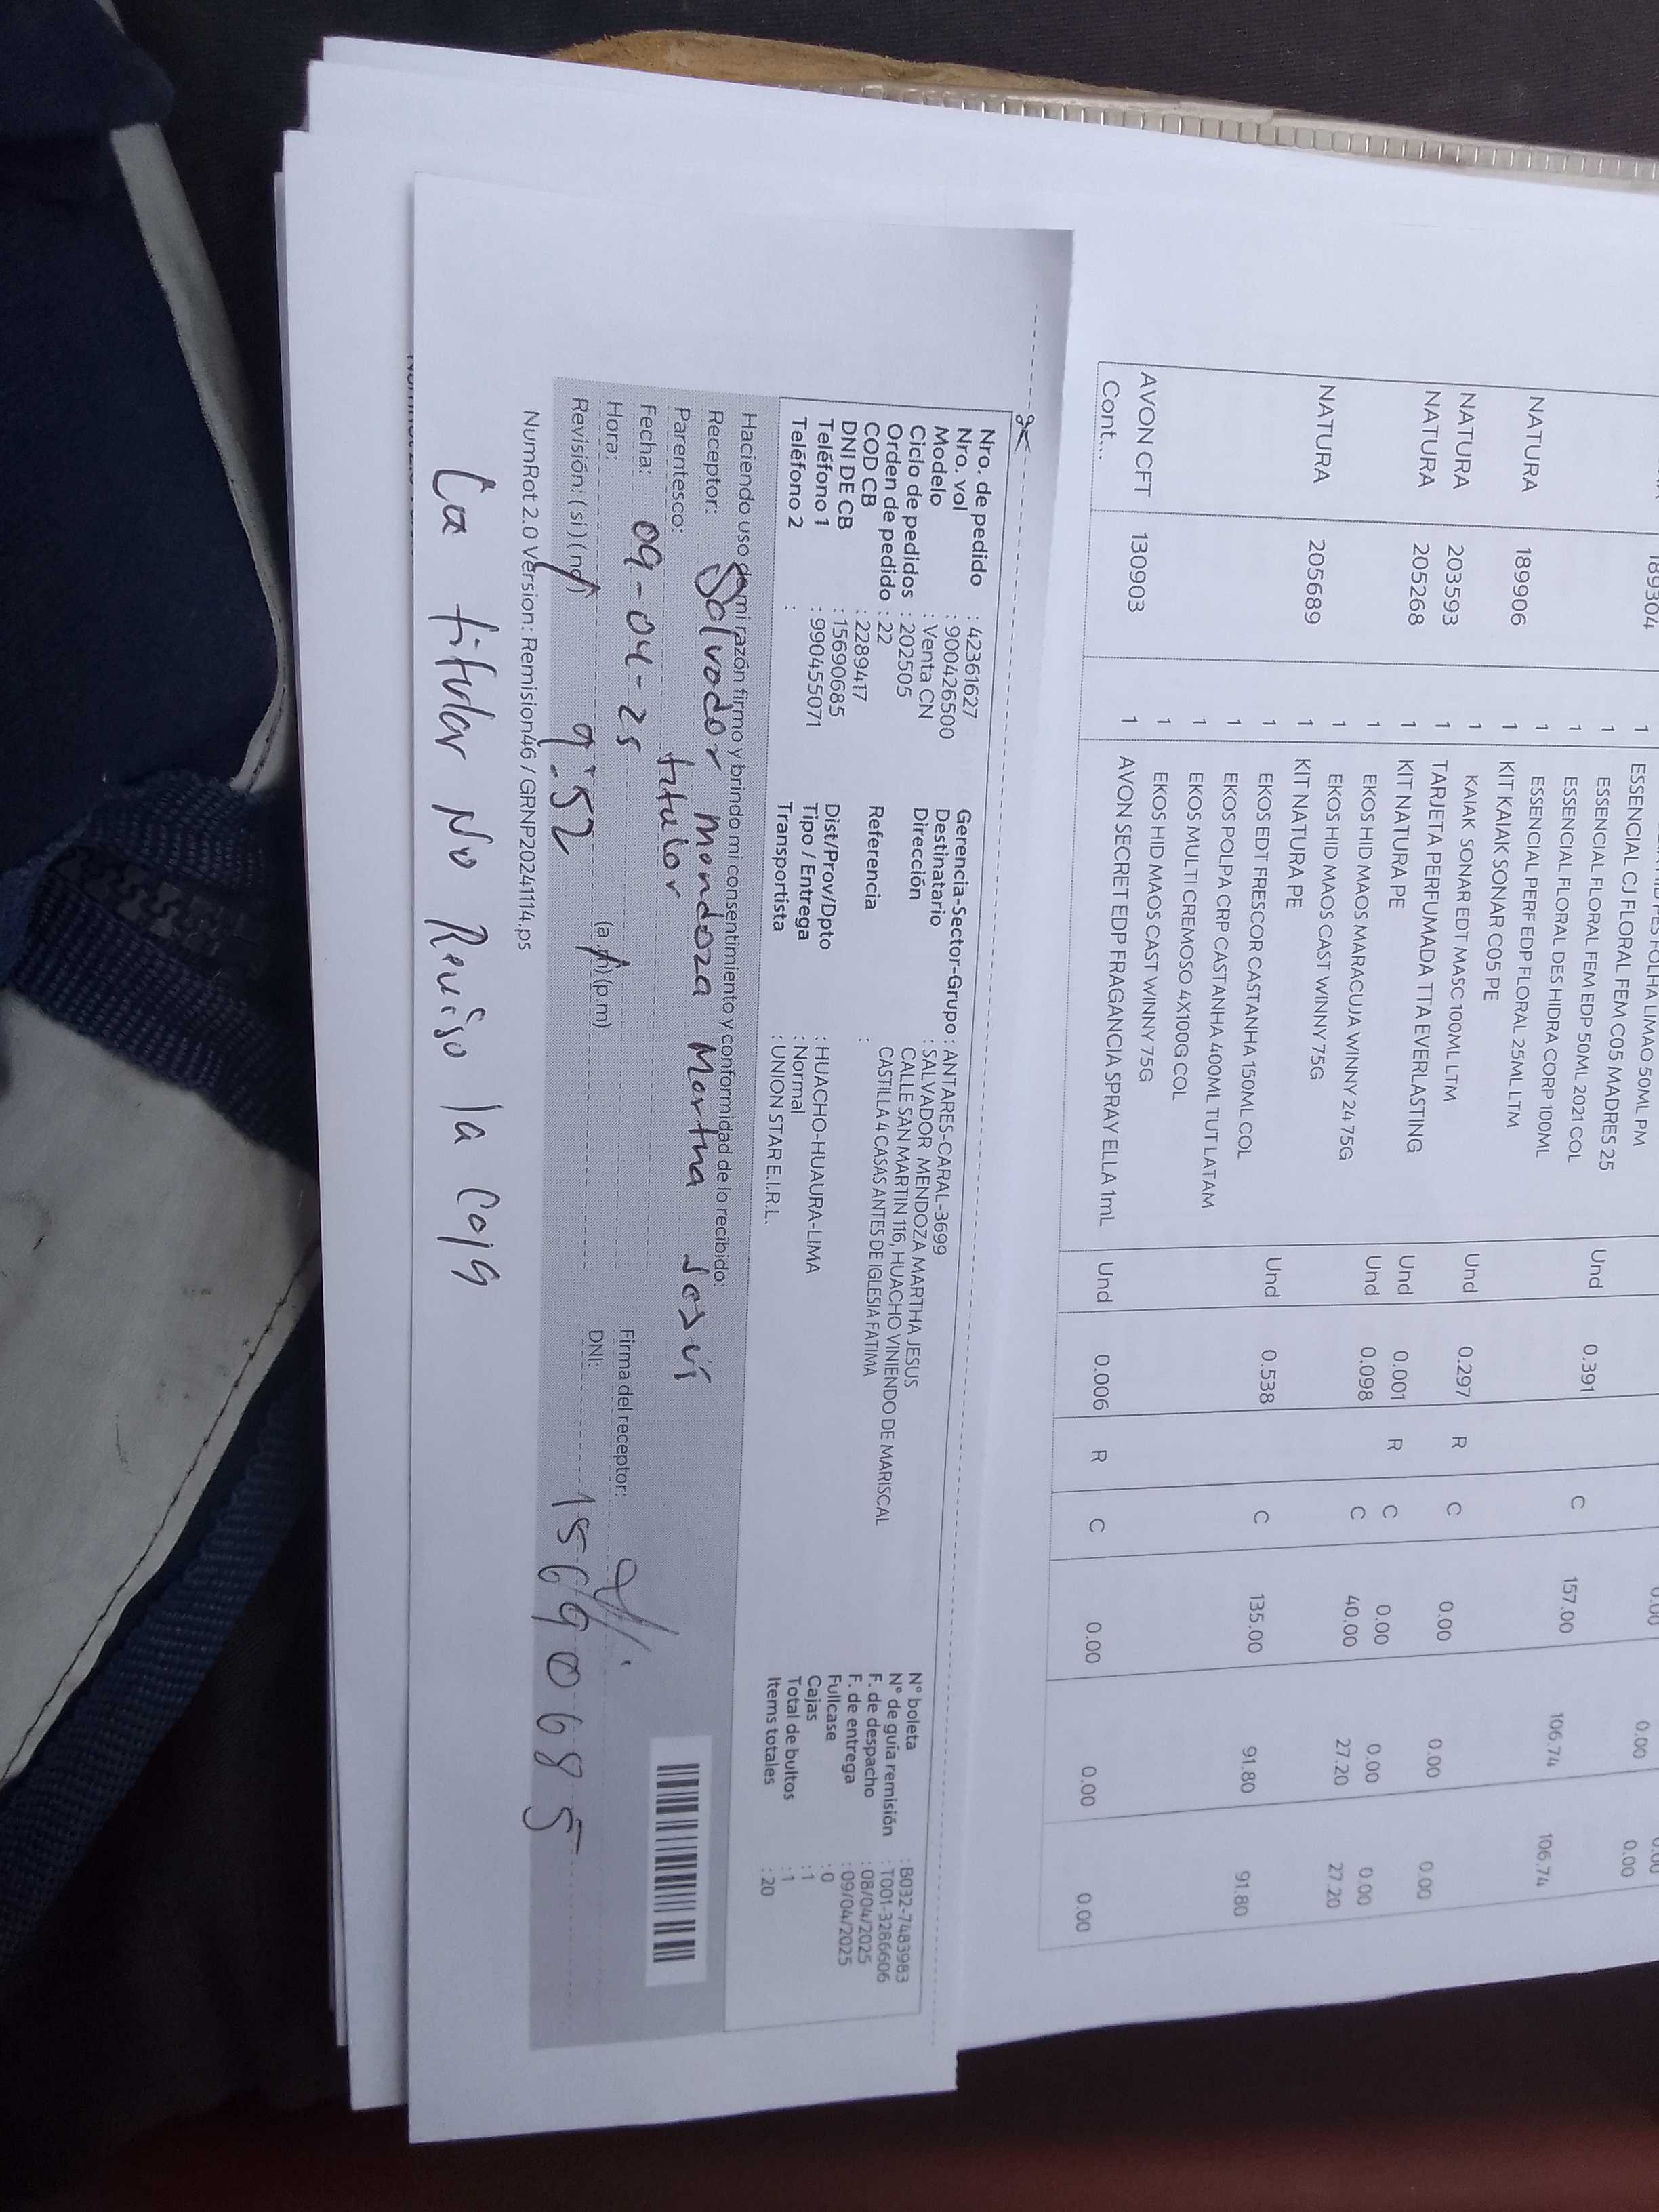 189304 1 ESSENCIAL CJ FLORAL FEM C05 MADRES 25 0.00
1 ESSENCIAL FLORAL FEM EDP 50ML 2021 COL
1 ESSENCIAL FLORAL DES HIDRA CORP 100ML
1 ESSENCIAL PERF EDP FLORAL 25ML LTM
FOLHA LIMAO 50ML PM 0.00 0.00
NATURA 189906 1 KIT KAIAK SONAR C05 PE Und 0.391 C 157.00 106.74 106.74
1 KAIAK SONAR EDT MASC 100ML LTM
NATURA 203593 1 TARJETA PERFUMADA TTA EVERLASTING Und 0.297 R C 0.00 0.00 0.00
NATURA 205268 1 KIT NATURA PE Und 0.001 R C 0.00 0.00 0.00
1 EKOS HID MAOS MARACUJA WINNY 24 75G Und 0.098 C 40.00 27.20 27.20
1 EKOS HID MAOS CAST WINNY 75G
NATURA 205689 1 KIT NATURA PE
1 EKOS EDT FRESCOR CASTANHA 150ML COL Und 0.538 C 135.00 91.80 91.80
1 EKOS POLPA CRP CASTANHA 400ML TUT LATAM
1 EKOS MULTI CREMOSO 4X100G COL
1 EKOS HID MAOS CAST WINNY 75G
AVON CFT 130903 1 AVON SECRET EDP FRAGANCIA SPRAY ELLA 1mL Und 0.006 R C 0.00 0.00 0.00
Cont...
Nro. de pedido : 42361627
Nro. vol : 900426500
Modelo : Venta CN
Ciclo de pedidos : 202505
Orden de pedido : 22
COD CB : 2289417
DNI DE CB : 15690685
Teléfono 1 : 990455071
Teléfono 2 :
Gerencia-Sector-Grupo : ANTARES-CARAL-3699
Destinatario : SALVADOR MENDOZA MARTHA JESUS
Dirección CALLE SAN MARTIN 116, HUACHO VINIENDO DE MARISCAL
CASTILLA 4 CASAS ANTES DE IGLESIA FATIMA
Referencia :
Dist/Prov/Dpto : HUACHO-HUAURA-LIMA
Tipo / Entrega : Normal
Transportista : UNION STAR E.I.R.L.
N° boleta : B032-7483983
N° de guía remisión : T001-3286606
F. de despacho : 08/04/2025
F. de entrega : 09/04/2025
Fullcase : 0
Cajas : 1
Total de bultos : 1
Items totales : 20
Haciendo uso de mi razón firmo y brindo mi consentimiento y conformidad de lo recibido:
Receptor: Salvador mendoza Martha Jesús
Parentesco: titular
Fecha: 09-04-25
Hora: 9:52 (a.m) (p.m)
Revisión: (si) (no)
Firma del receptor:
DNI: 15690685
NumRot 2.0 Version: Remision46 / GRNP20241114.ps
La titular No Reviso la caja